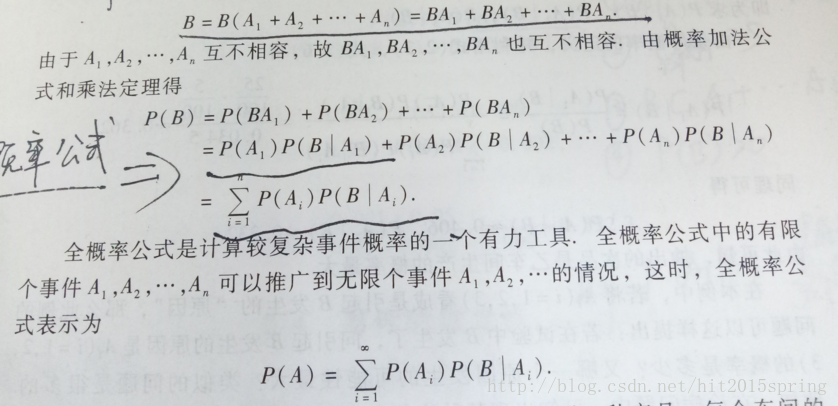 B = B(A₁ + A₂ + ⋯ + Aₙ) = BA₁ + BA₂ + ⋯ + BAₙ.
由于 A₁,A₂,⋯,Aₙ 互不相容，故 BA₁,BA₂,⋯,BAₙ 也互不相容. 由概率加法公
式和乘法定理得
P(B) = P(BA₁) + P(BA₂) + ⋯ + P(BAₙ)
= P(A₁)P(B | A₁) + P(A₂)P(B | A₂) + ⋯ + P(Aₙ)P(B | Aₙ)
率公式
= ∑ⁿᵢ₌₁ P(Aᵢ)P(B | Aᵢ).
全概率公式是计算较复杂事件概率的一个有力工具. 全概率公式中的有限
个事件 A₁,A₂,⋯,Aₙ 可以推广到无限个事件 A₁,A₂,⋯的情况，这时，全概率公
式表示为
P(A) = ∑^∞ᵢ₌₁ P(Aᵢ)P(B | Aᵢ).
http://blog.csdn.net/hit2015spring